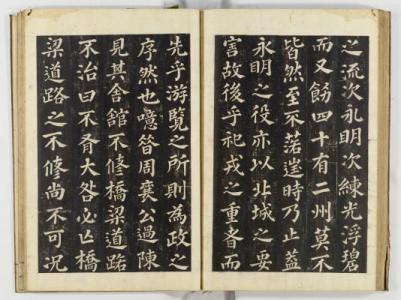 之流次永明次練光浮碧
而又飭四十有二州莫不
皆然至不時乃止蓋
永明之役亦以北城之要
害故後乎祀戎之重者而
先乎游覽之所則為政之
序然也噫昔周襄公過陳
見其舍舘不修橋梁道路
不治曰不有大咎必亡橋
梁道路之不修尚不可況